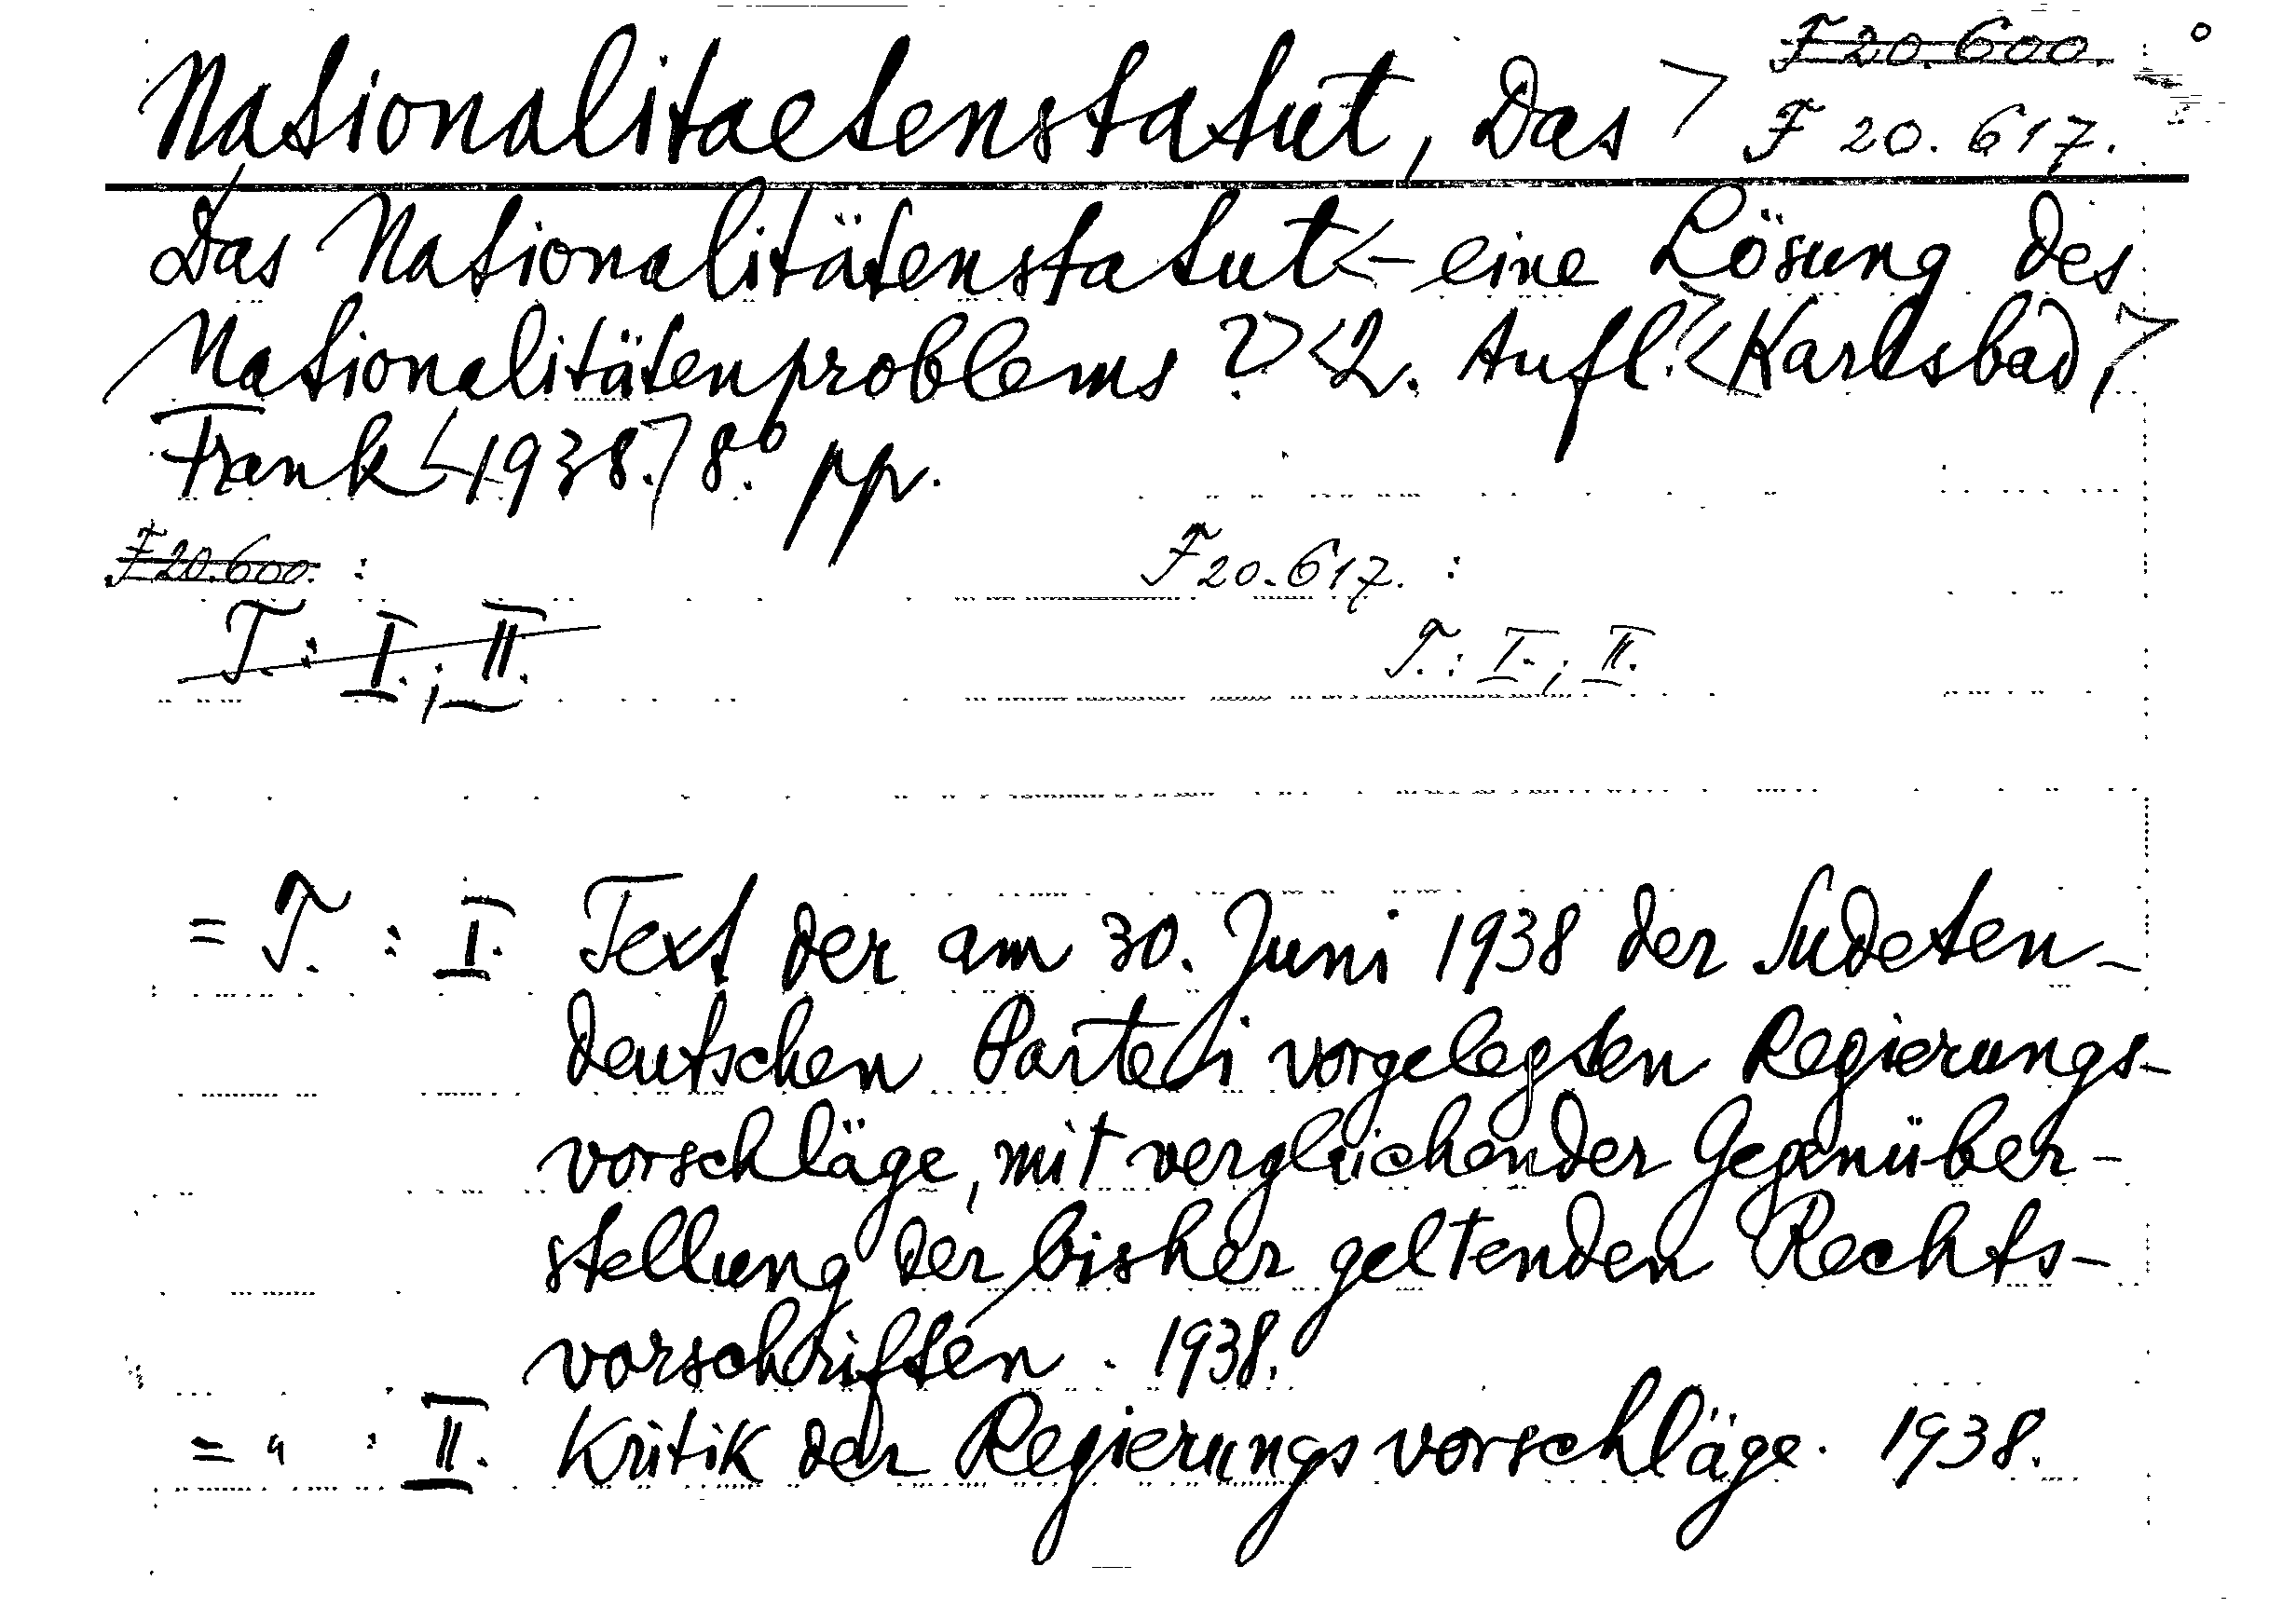 F 20.600.
Nationalitaetenstatut, Das > F 20.617.
Das Nationalitätenstatut <- eine Lösung des
Nationalitätenproblems ?> <2. Aufl.> <Karlsbad,>
Frank <1938.> 8.° pp.
F 20.600. : F 20.617. :
T. : I. ; II. T. : I. ; II.
= T. : I. Text der am 30. Juni 1938 der Sudeten-
deutschen Partei vorgelegten Regierungs-
vorschläge, mit vergleichender Gegenüber-
stellung der bisher geltenden Rechts-
vorschriften. 1938.
= " : II. Kritik der Regierungsvorschläge. 1938.